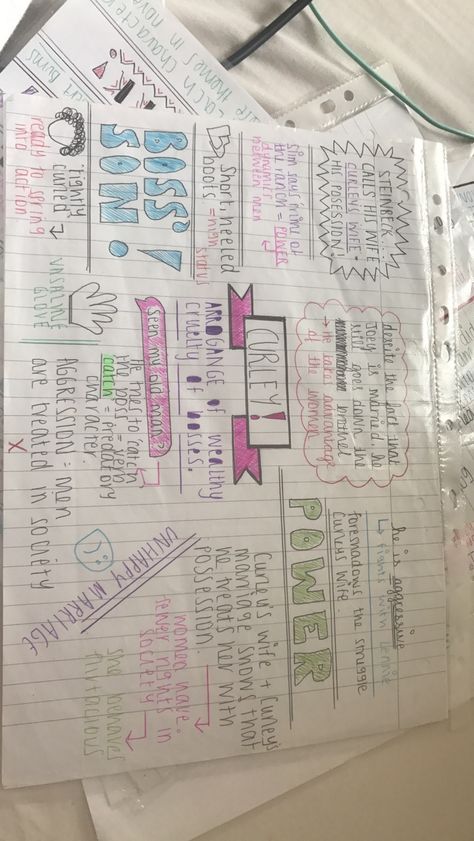 STEINBECK
CALLS HIS WIFE
CURLEYS WIFE -
HIS POSESSION!
slim says him at
the union = POWER
dynamics
between men
short heeled
boots = high status
BOSS'
SON!
tightly
curled →
ready to spring
into action
VASALINE
GLOVE
CURLEY!
ARROGANCE OF wealthy
cruelty of bosses.
seen my old man?
He tries to catch
the boss = verb
catch = predatory
character.
AGGRESSION = men
are treated in society
X
despite the fact that
he is married he
still goes down the
brothel
→ He takes advantage
of the women
he is aggressive
↳ fights with lennie
foreshadows the struggle
curleys wife.
POWER
Curley's wife + Curley's
marriage shows that
he treats her with
possession.
UNHAPPY MARRIAGE
women have
fewer rights in
society
she behaves
flirtatious
each character
themes in novel